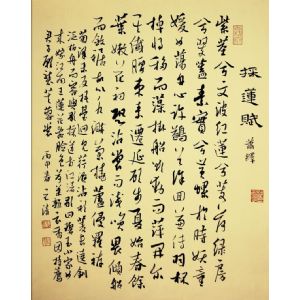 採蓮賦
蕭繹
紫莖兮文波紅蓮兮芰荷綠房
兮翠蓋素實兮黃螺於時妖童
媛女蕩舟心許鷁首徐回兼傳羽杯
棹將移而藻掛船欲動而萍開爾
其纖腰束素遷延顧步夏始春餘
葉嫩花初恐沾裳而淺笑畏傾船
而斂裾故以水濺蘭橈蘆侵羅袸
菊澤未反梧臺迥見荇濕沾衫菱長繞釧
泛柏舟而容與歌採蓮於江渚歌曰碧玉小家女
來嫁汝南王蓮花亂臉色荷葉雜衣香因持薦
君子願襲芙蓉裳 丙申春